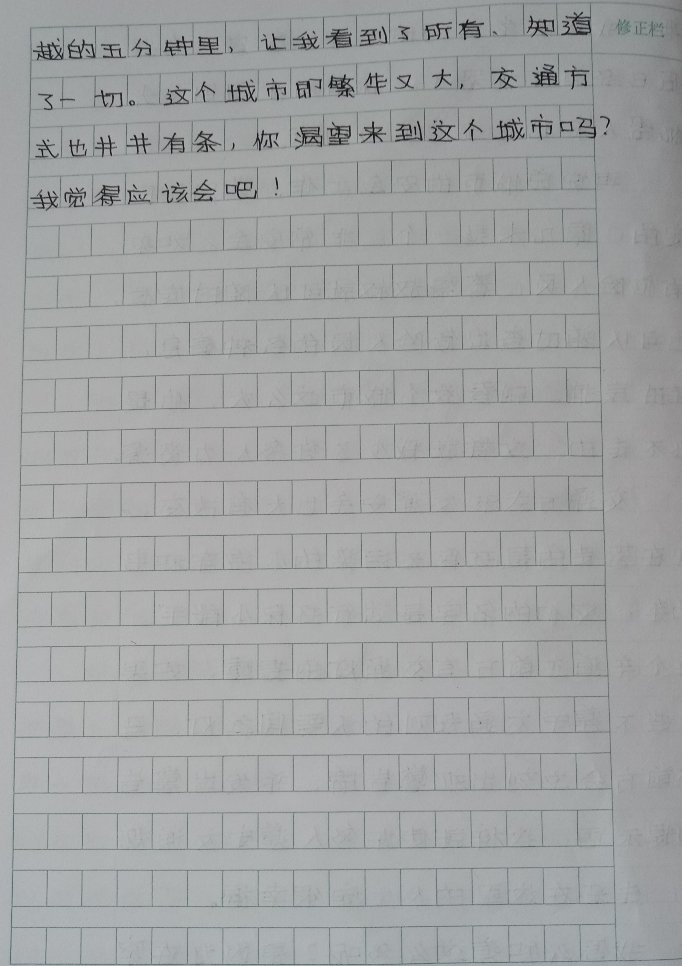 越的五分钟里，让我看到了所有、知道
修正栏
了一切。这个城市即繁华又大，交通方
式也井井有条，你渴望来到这个城市吗？
我觉得应该会吧！